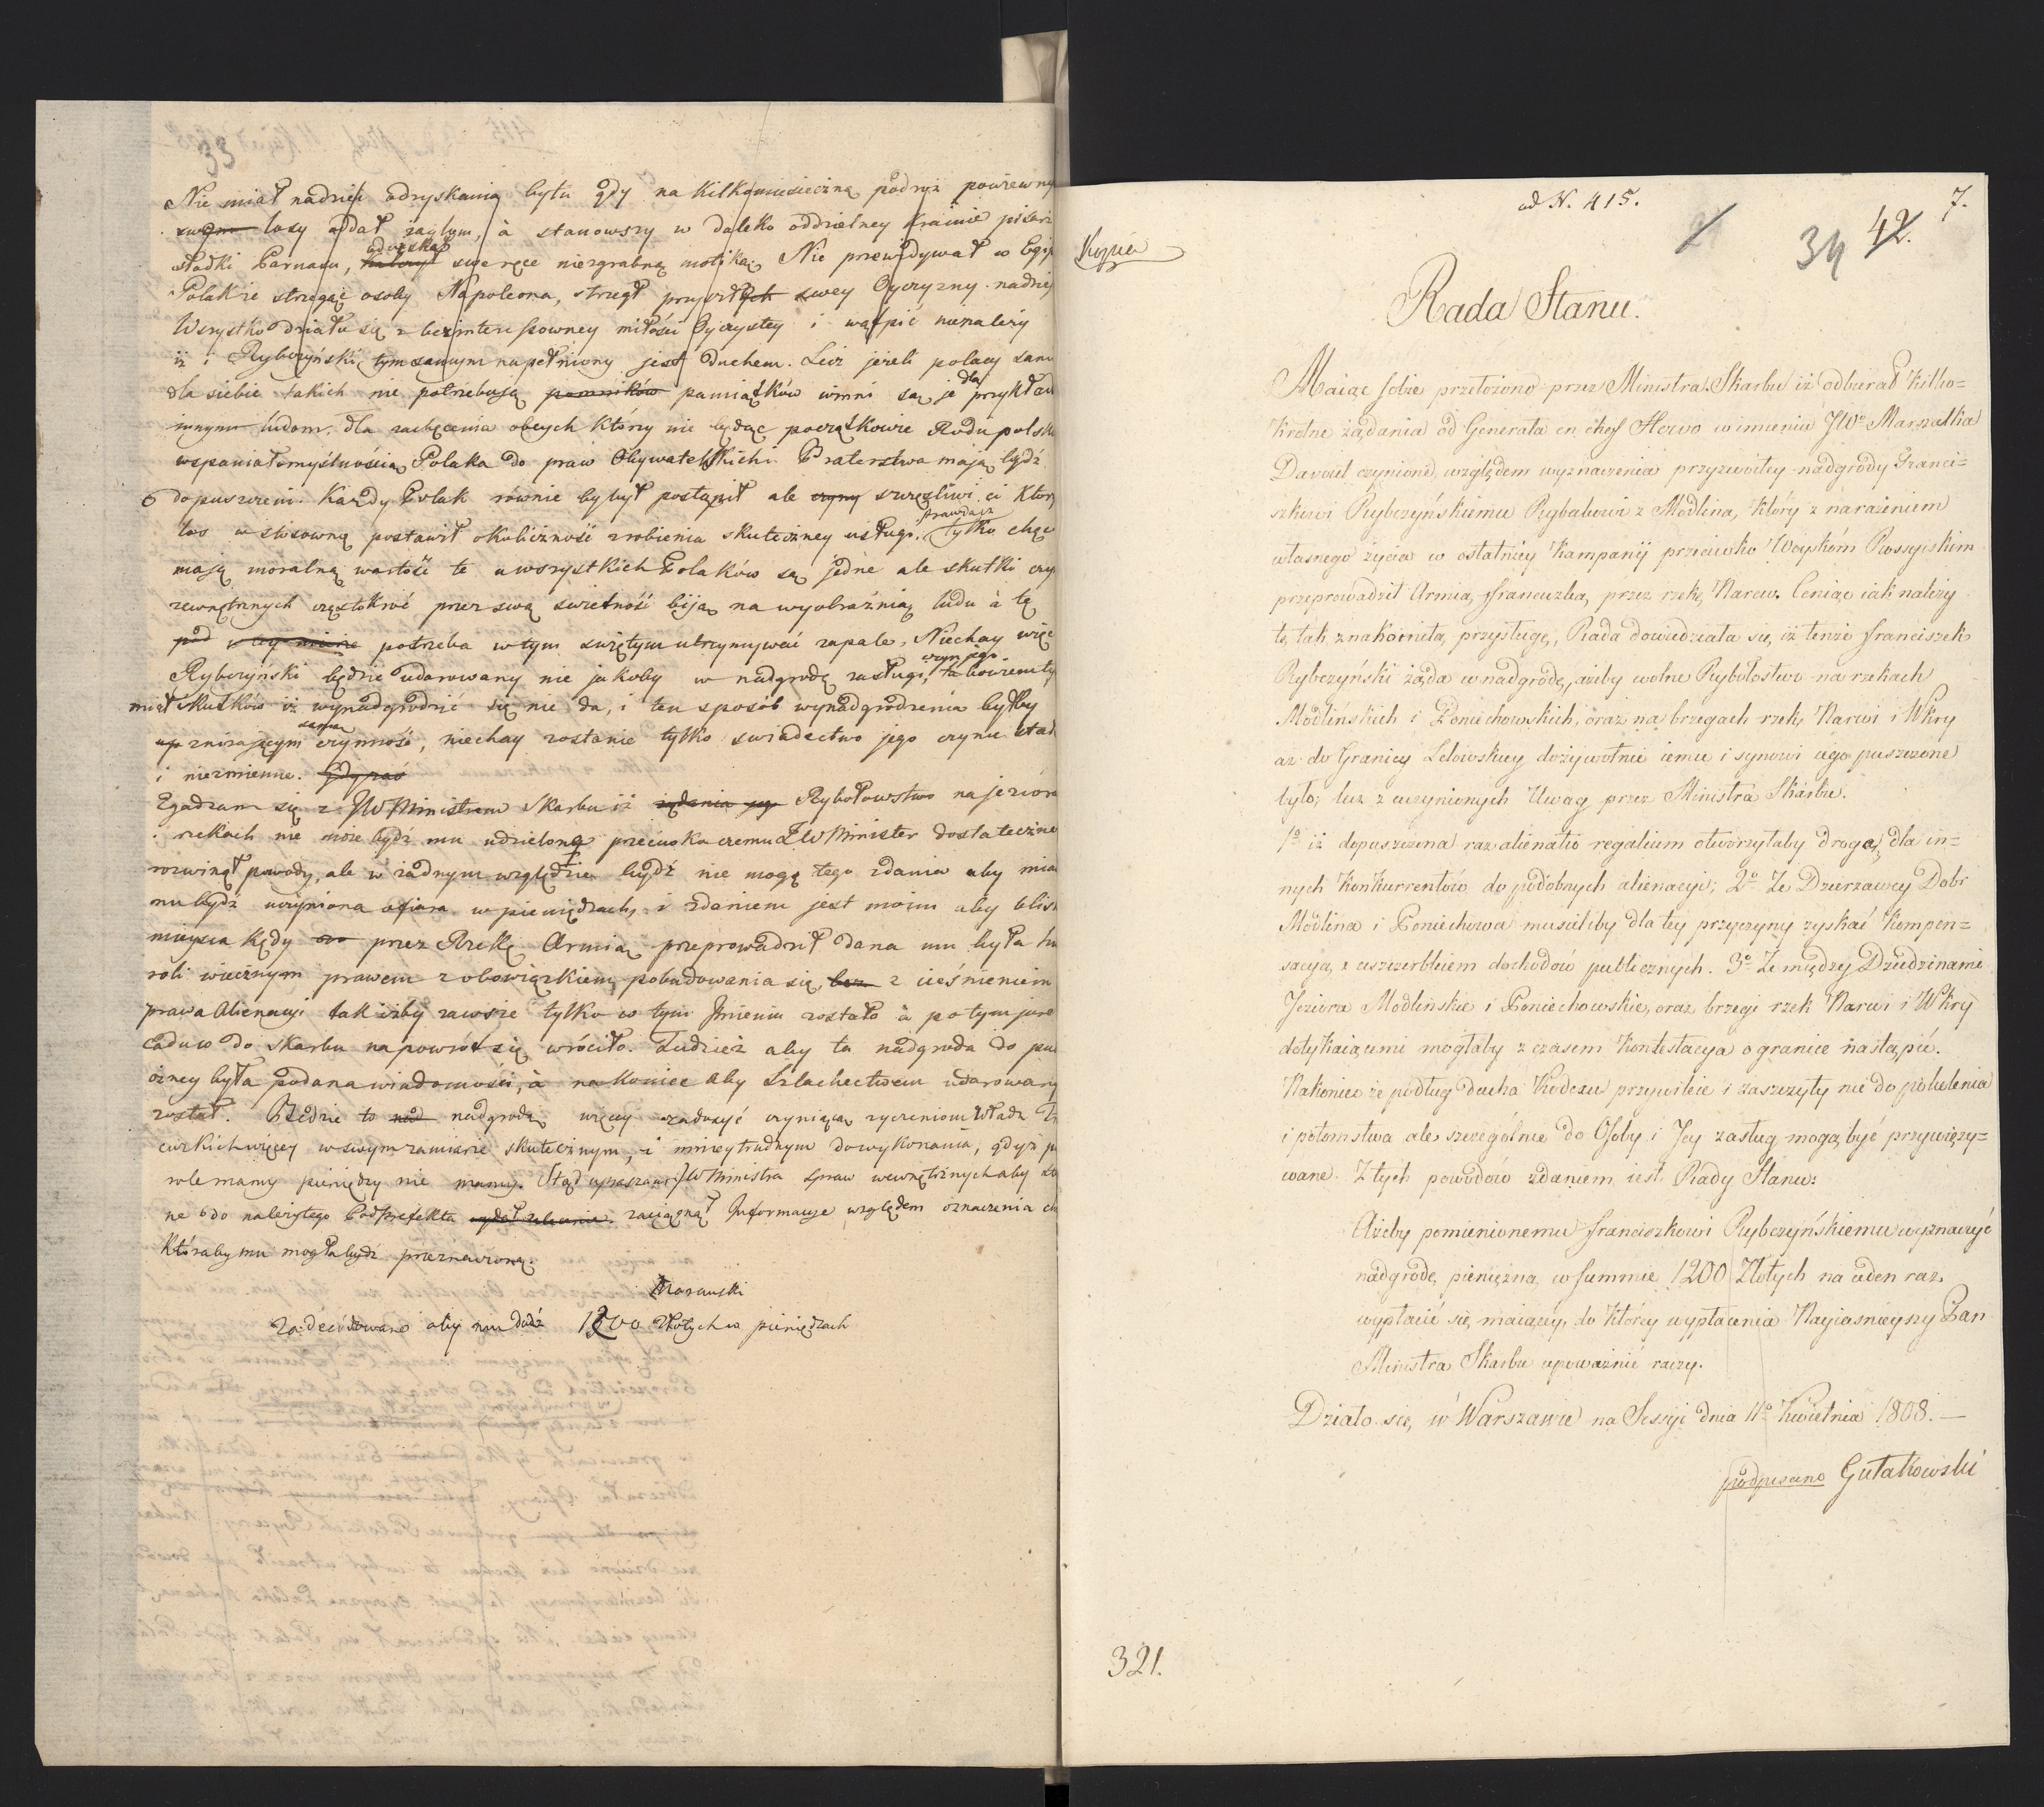 33
Nie miał nadziei odzyskania bytu gdy na kilkomiesieczną podruż powiewny
swym losy oddał żaglom, à stanowszy w daleko oddzielney krainie
odciskał
Parnasu, swe ręce niezgrabną motiką Nie przewidywał w Egip
Polak że strzegąc osoby Napoleona, strzegł przyszłych swey Oyczyzny nadziei
Wszystko działo się z bezinteressowney miłości Oyczystey i wątpić nienależy
iż i Rybczyński tym samym napełniony jest duchem. Lecz jeżeli polacy sami
dla siebie takich nie potrzebują pomników pamiątków winni są je dla przykładu
innym ludom, dla zachęcenia obcych którzy nie będąc powiązkowie Rodu polsk
wspaniałomyślnością Polaka do praw Obywatelskich i Braterstwa mają bydź
dopuszczeni. Każdy Polak równie byłby postąpił ale czyny szczęśliwi ci którz
los w stosowną postawił okoliczność zrobienia skuteczney usługi. Tylko chęci
mają moralną wartość te u wszystkich Polaków są jedne ale skutki czy
zewnętrznych częstokroć przez swą swietność biją na wyobraźnią ludu à tę
pod potrzeba w tym świętym utrzymywać zapale. Niechay więc
czyn jego
Rybczyński będzie udarowany nie jakoby w nadgrodę zasługi, ta bowiem by
miał skutków iż wynadgrodzić się nie da, i ten sposób wynadgrodzenia byłby
zniżającym czynność, niechay zostanie tylko swiadectwo jego czynu stał
i niezmienne.
Zgadzam się z JW Ministrem Skarbu iż żądania jego Rybołowstwo na jezióra
i rzekach nie może bydź mu udzieloną przeciwko czemu JW Minister dostateczne
rozwinął powody, ale w żadnym względzie bydź nie mogę tego zdania aby mia
mu bydź uczyniona ofiara w pieniędzach, i zdaniem jest moim aby blisk
mieysca kędy przez Rzekę Armią przeprowadził dana mu była
roli wiecznym prawem z obowiązkiem pobudowania się, bez z cieśnieniem
prawa Alienacyi tak iżby zawsze tylko w tym Imieniu zostało à po tym jure
caduco do skarbu napowrót się wróciło. Tudzież aby ta nadgroda do pu
czney była podana wiadomości, à nakoniec aby Szlachectwem udarowany
został. Będzie to nadgrodą więcy zadosyć czyniącą życzeniom Władz
cuzkich więcey w swym zamiarze skutecznym, i mniey trudnym do wykonania, gdyż p
role mamy pieniędzy nie mamy. Stąd upraszam JW Ministra Spraw wewnętrznych aby
ne do należytego Podprefekta wydał zlecenie zaciągnął Informacye względem oznaczenia
któraby mu mogła bydź przeznaczoną.
Morawski
Zadecidowano aby mu dać 1200 złotych w pieniędzach
ad N. 415.
7.
42.
34
Kopia
Rada Stanu.
Maiąc sobie przełożono przez Ministra Skarbu iż odbierał kilko=
krotne żądania od Generała en chef Hervo w imieniu JWo Marszałka
Davout czynione, względem wyznaczenia przyzwoitey nadgrody Franci=
szkowi Rybczyńskiemu Rybakowi z Modlina, który z narażeniem
własnego życia w ostatniey Kampanij przeciwko Woyskóm Rossyiskim
przeprowadził Armią francuzką, przez rzekę Narew. Ceniąc iak należy
tę tak znakomitą przysługę, Rada dowiedziała się, iż tenże franciszek
Rybczyński żąda w nadgrodę, ażeby wolne Rybołostwo na rzekach
Modlińskich i Poniechowskich, oraz na brzegach rzek Narwi i Wkry
aż do Granicy dożywotnie iemu i synowi iego puszczone
było; lecz z uczynionych Uwag przez Ministra Skarbu.
1o iż dopuszczona raz alienatio regalium otworzyłaby drogę dla in=
nych Konkurrentów do podobnych alienacyi; 2o Ze Dzierzawcy Dobr
Modlina i Poniechowa musieliby dla tey przyczyny zyskać Kompen=
sacyą, z uszczerbkiem dochodów publicznych. 3o Ze między Dziedzinami
Jeziora Modlińskie i Poniechowskie, oraz brzegi rzek Narwi i Wkry
dotykaiącemi mogłaby z czasem Kontestacya o granice nastąpić.
Nakoniec że podług ducha Kodexu przywileie i zaszczyty nie do pokolenia
i potomstwa ale szczególnie do Osoby i Jey zasług mogą być przywięzy=
wane. Z tych powodów zdaniem iest Rady Stanu:
Ażeby pomienionemu franciszkowi Rybczyńskiemu wyznaczyć
nadgrodę pieniężną w summie 1200 Złotych na ieden raz,
wypłacić się maiącey, do którey wypłacenia Nayiaśnieyszy Pan
Ministra Skarbu upoważnić raczy.
Działo się, w Warszawie na Sessyi dnia 11o Kwietnia 1808. —
podpisano Gutakowski
321.